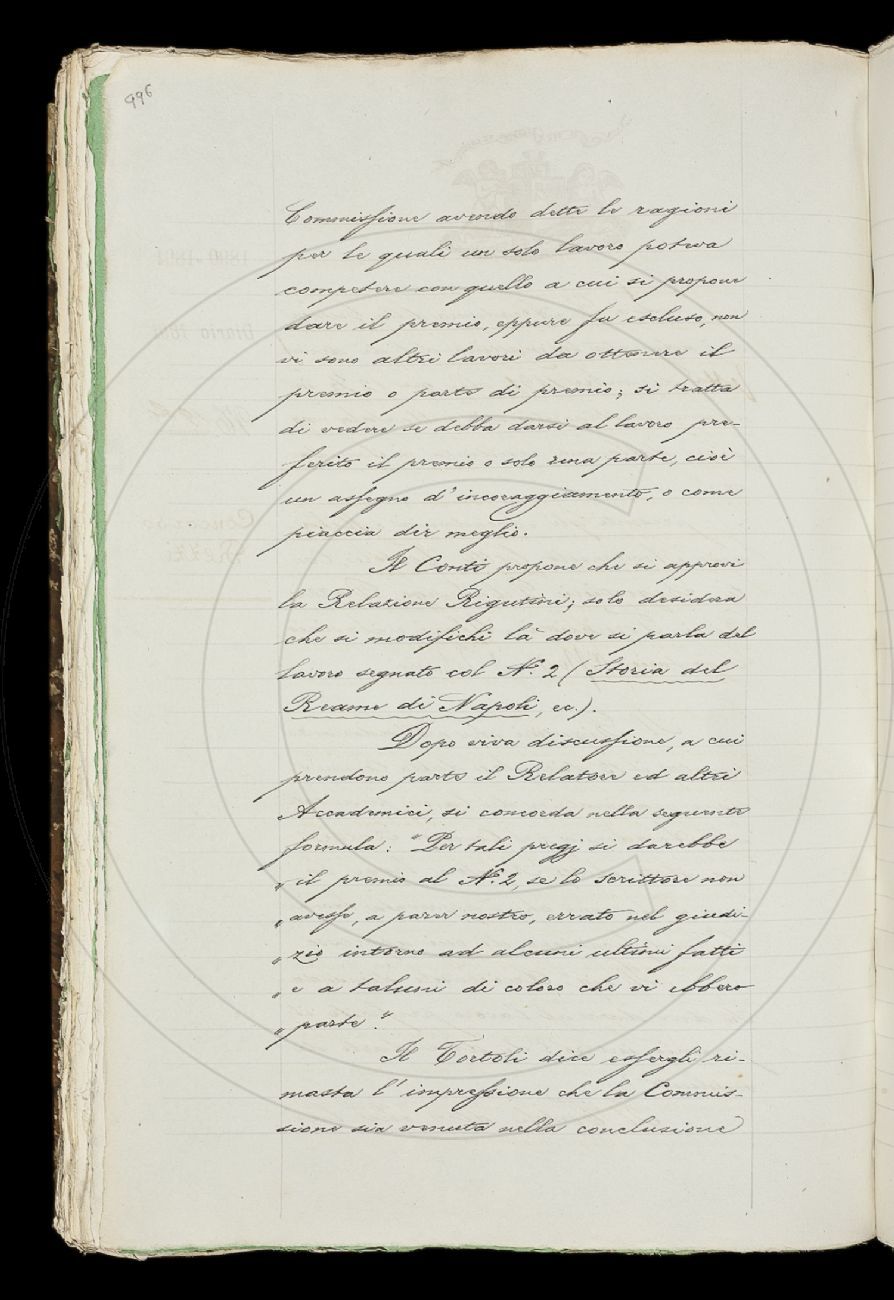 996
Commissione avendo dette le ragioni
per le quali un solo lavoro poteva
competere con quello a cui si propone
dare il premio, eppure fu escluso, non
vi sono altri lavori da ottenere il
premio o parte di premio; si tratta
di vedere se debba darsi al lavoro pre-
ferito il premio o solo una parte, cioè
un assegno d'incoraggiamento, o come
piaccia dir meglio.
Il Conti propone che si approvi
la Relazione Rigutini; solo desidera
che si modifichi là dove si parla del
lavoro segnato col N.° 2 (Storia del
Reame di Napoli, ec.).
Dopo viva discussione, a cui
prendono parte il Relatore ed altri
Accademici, si concorda nella seguente
formula: "Per tali pregj si darebbe
„ il premio al N.° 2, se lo Scrittore non
„ avesse, a parer nostro, errato nel giudi-
„ zio intorno ad alcuni ultimi fatti
„ e a taluni di coloro che vi ebbero
„ parte."
Il Tortoli dice essergli ri-
masta l'impressione che la Commis-
sione sia venuta nella conclusione